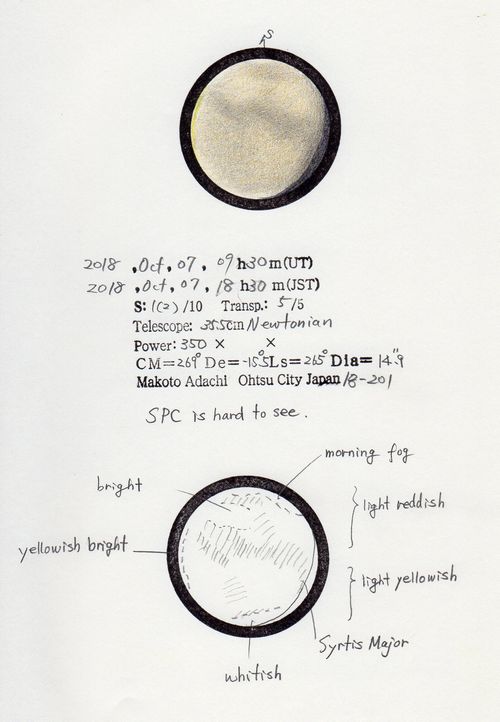 S
2018 , Oct , 07 , 09 h30 m(UT)
2018 , Oct , 07 , 18 h30 m(JST)
S: 1(2) /10 Transp.: 5/5
Telescope: 35.5cm Newtonian
Power: 350 × ×
CM=269° De=-15.5° Ls=265° Dia= 14".9
Makoto Adachi Ohtsu City Japan 18-201
SPC is hard to see.
morning fog
bright
light reddish
yellowish bright
light yellowish
Syrtis Major
whitish